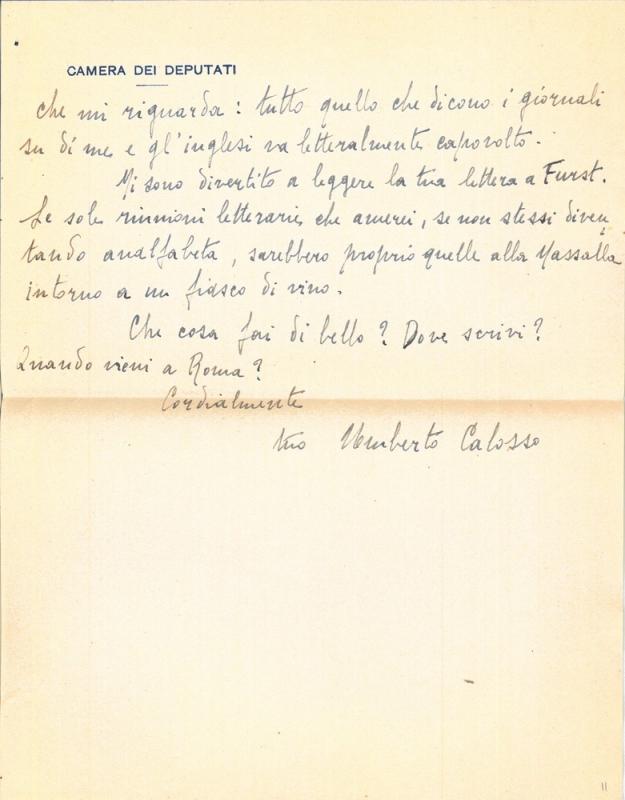 CAMERA DEI DEPUTATI
che mi riguarda: tutto quello che dicono i giornali
su di me e gl'inglesi va letteralmente capovolto.
Mi sono divertito a leggere la tua lettera a Furst.
Le sole riunioni letterarie che amerei, se non stessi diven
tando analfabeta, sarebbero proprio quelle alla Massalla
intorno a un fiasco di vino.
Che cosa fai di bello? Dove scrivi?
Quando vieni a Roma?
Cordialmente
tuo Umberto Calosso
11